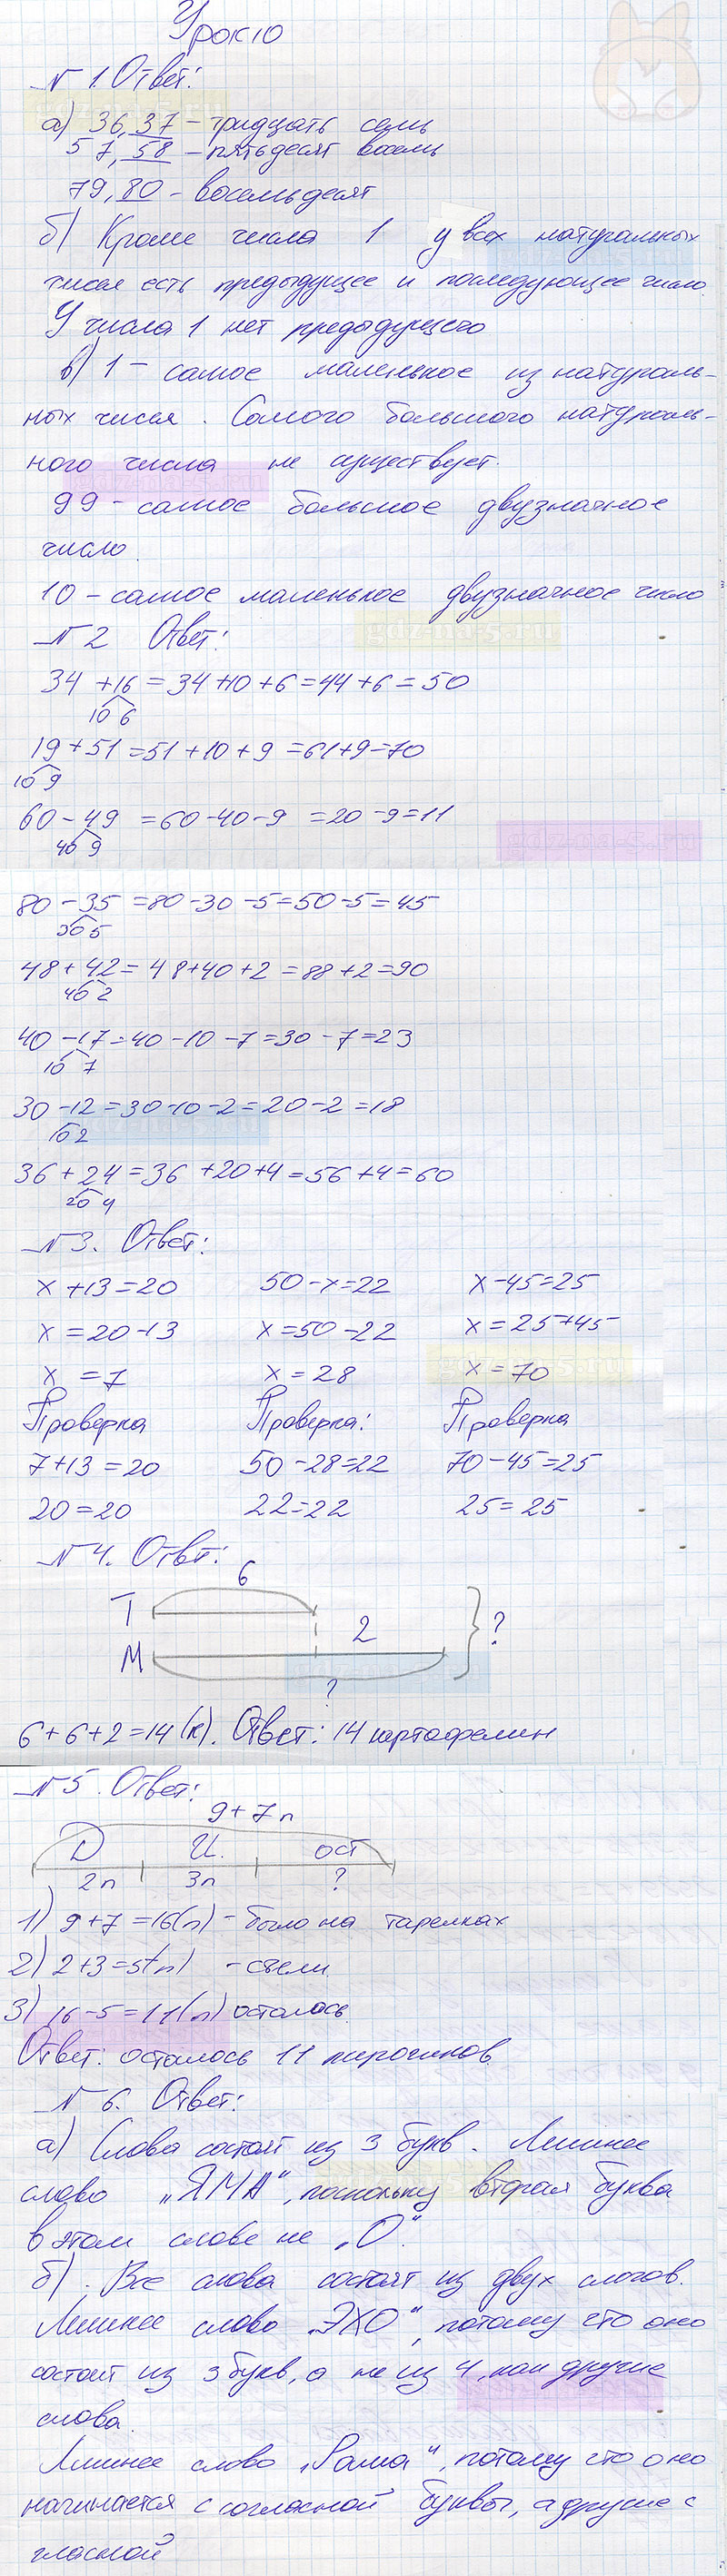 Урок 10
№ 1. Ответ:
а) 36, 37 – тридцать семь
57, 58 – пятьдесят восемь
79, 80 – восемьдесят
б) Кроме числа 1 у всех натуральных
чисел есть предыдущее и последующее число
У числа 1 нет предыдущего
в) 1 – самое маленькое из натураль-
ных чисел. Самого большого натураль-
ного числа не существует.
99 – самое большое двузначное
число
10 – самое маленькое двузначное число
№ 2 Ответ:
34 + 16 = 34+10+6=44+6=50
10 6
19 + 51 = 51+10+9=61+9=70
10 9
60 – 49 = 60-40-9 =20-9=11
40 9
80 – 35 =80-30-5=50-5=45
30 5
48 + 42 = 48+40+2 =88+2=90
40 2
40 – 17 = 40-10-7=30-7=23
10 7
30 – 12 = 30-10-2=20-2=18
10 2
36 + 24 = 36+20+4=56+4=60
20 4
№ 3. Ответ:
x+13=20 50-x=22 x-45=25
x=20-13 x=50-22 x=25+45
x=7 x=28 x=70
Проверка Проверка: Проверка
7+13=20 50-28=22 70-45=25
20=20 22=22 25=25
№ 4. Ответ:
6
Т
2
?
М
?
6+6+2=14(к). Ответ: 14 картофелин
№ 5. Ответ:
9+7 п
Д И. ост
2п 3п ?
1) 9+7=16(п) – было на тарелках
2) 2+3=5(п) – съели
3) 16-5=11(п) осталось.
Ответ: осталось 11 пирожков
№ 6. Ответ:
а) Слова состоят из 3 букв. Лишнее
слово „ЯМА", поскольку вторая буква
в этом слове не „О".
б). Все слова состоят из двух слогов.
Лишнее слово „ЭХО", потому что оно
состоит из 3 букв, а не из 4, как другие
слова.
Лишнее слово „Рама", потому что оно
начинается с согласной буквы, а другие с
гласной
gdz-na-5.ru
gdz-na-5.ru